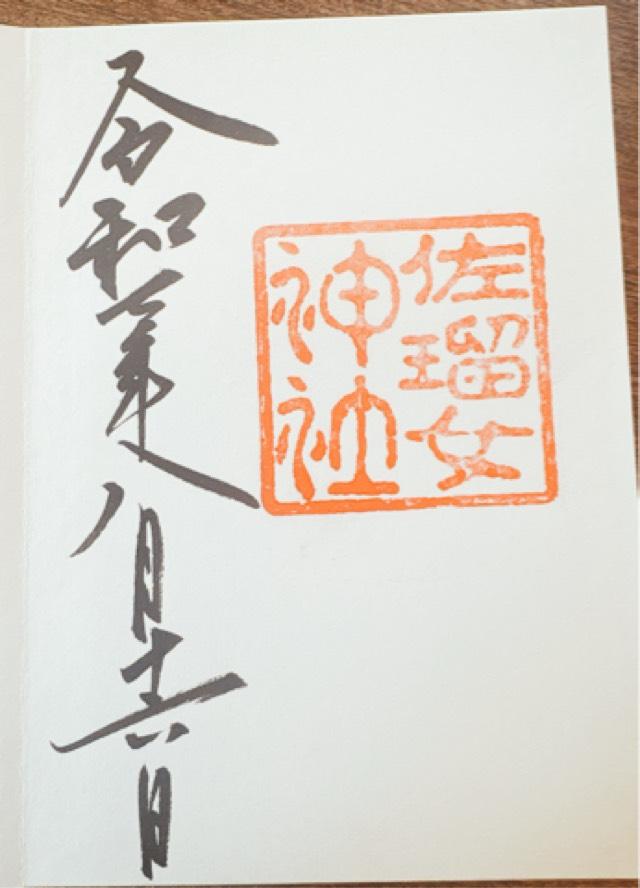 佐瑠女
神社
令和年八月十六日